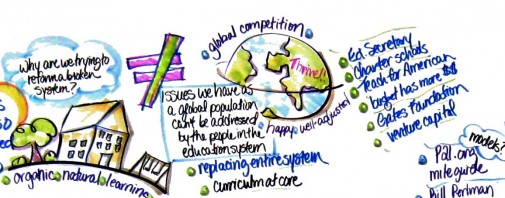 Why are we trying to
reform a broken
system?
organic natural learning
≠
global competition
Thrive!
happy well-adjusted
Issues we have as
a global population
can't be addressed
by the people in the
education system
replacing entire system
curriculum at core
Ed. Secretary
Charter schools
Teach for American
budget has more $$
Gates Foundation
venture capital
models?
P21.org
mile guide
Bill Perlman